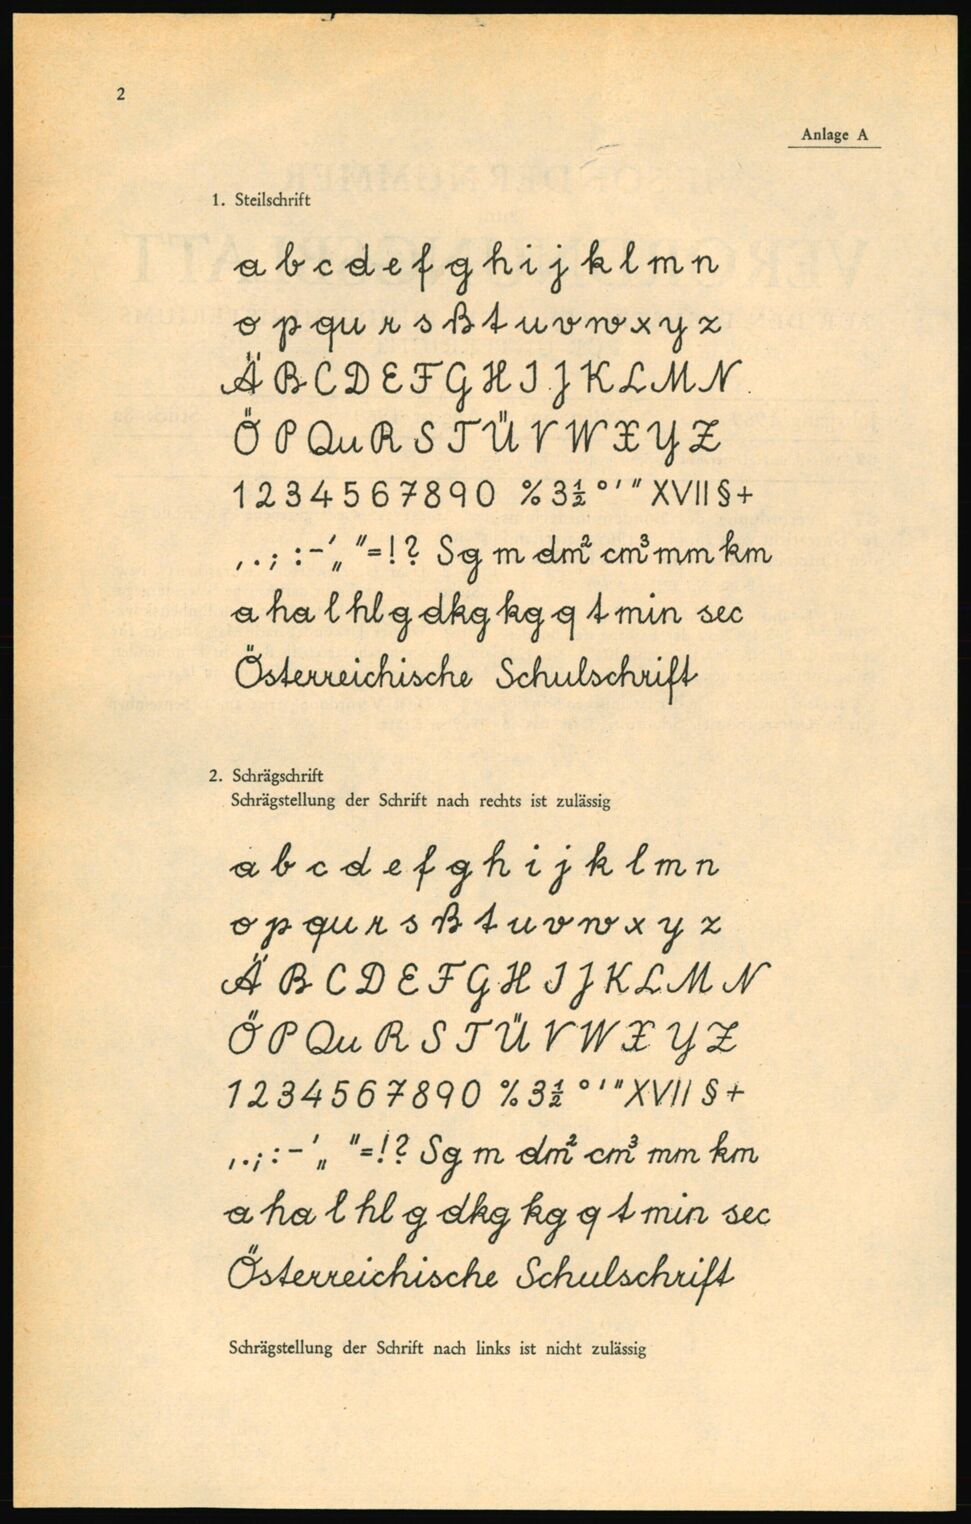 2
Anlage A
1. Steilschrift
a b c d e f g h i j k l m n
o p qu r s ß t u v w x y z
Ä B C D E F G H I J K L M N
Ö P Qu R S T Ü V W X Y Z
1 2 3 4 5 6 7 8 9 0 % 3½ ° ' " XVII § +
, . ; : - ' „ "= ! ? Sg m dm² cm³ mm km
a ha l hl g dkg kg q t min sec
Österreichische Schulschrift
2. Schrägschrift
Schrägstellung der Schrift nach rechts ist zulässig
a b c d e f g h i j k l m n
o p qu r s ß t u v w x y z
Ä B C D E F G H I J K L M N
Ö P Qu R S T Ü V W X Y Z
1 2 3 4 5 6 7 8 9 0 % 3½ ° ' " XVII § +
, . ; : - ' „ "= ! ? Sg m dm² cm³ mm km
a ha l hl g dkg kg q t min sec
Österreichische Schulschrift
Schrägstellung der Schrift nach links ist nicht zulässig